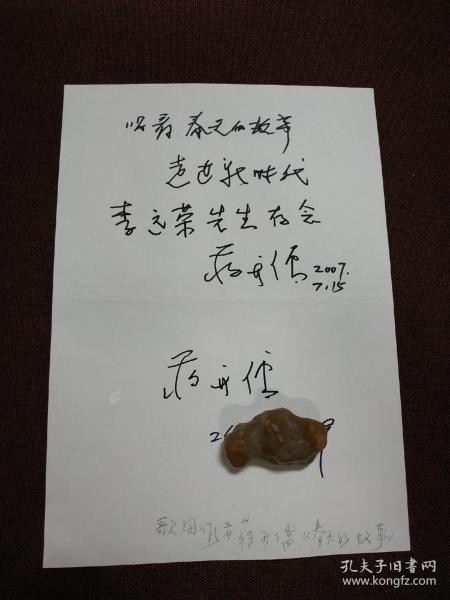 唱着春天的故事
走进新时代
李远荣先生存念
蒋开儒 2007.
7.15
蒋开儒
2
歌词作者蒋开儒《春天的故事》
孔夫子旧书网
www.kongfz.com